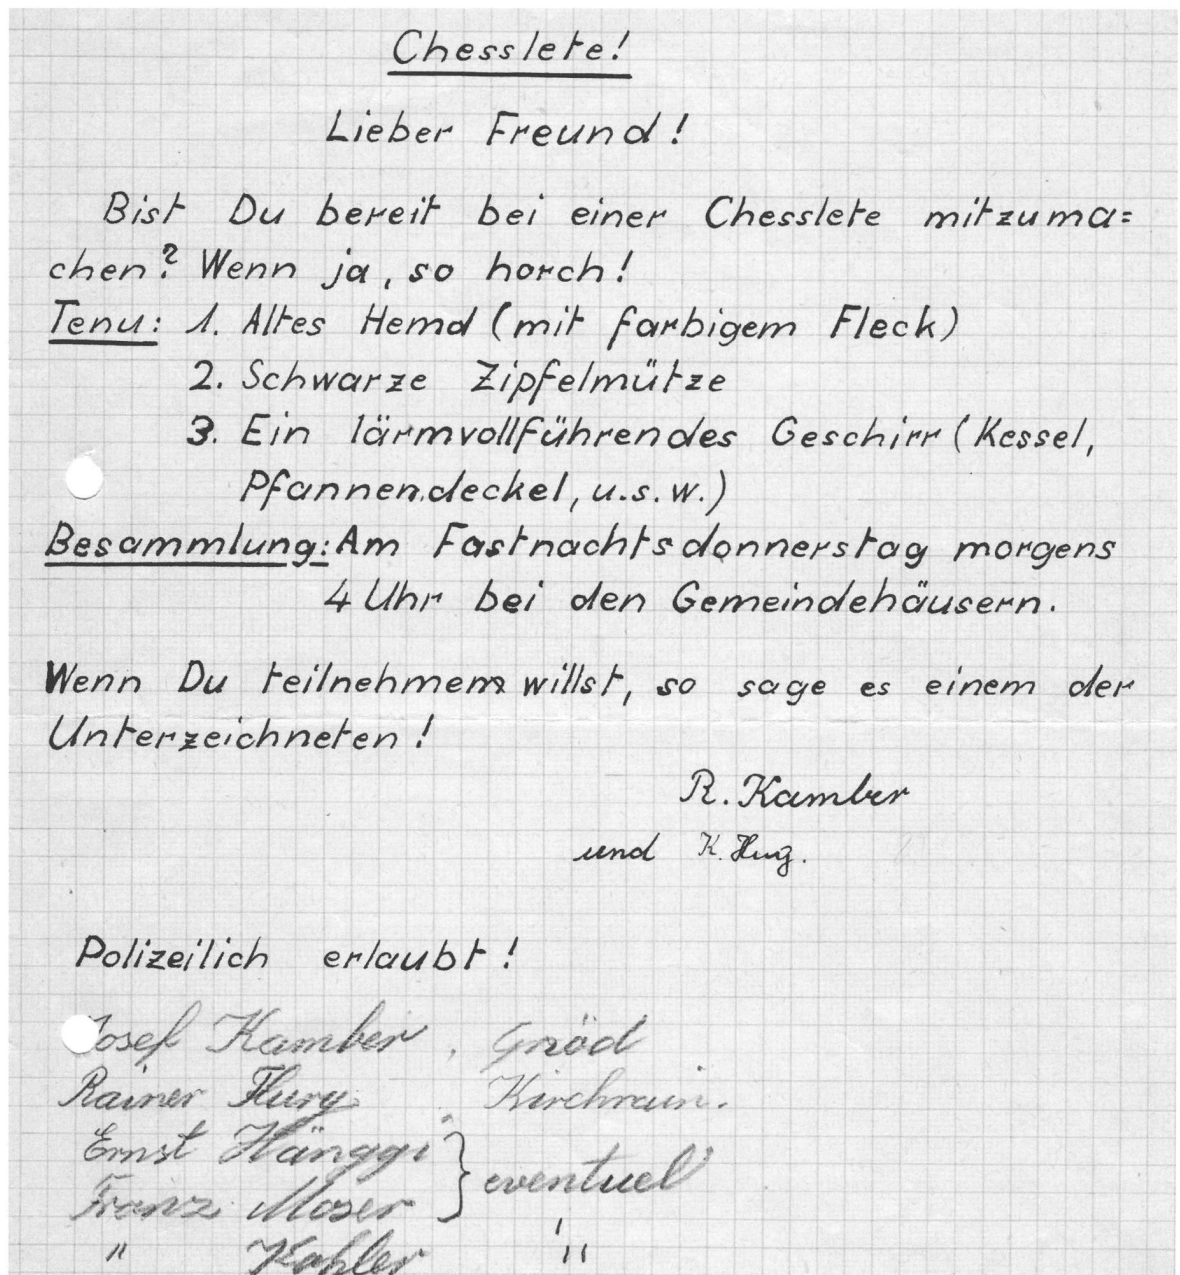 Chesslete!
Lieber Freund!
Bist Du bereit bei einer Chesslete mitzuma=
chen? Wenn ja, so horch!
Tenu: 1. Altes Hemd (mit farbigem Fleck)
2. Schwarze Zipfelmütze
3. Ein lärmvollführendes Geschirr (Kessel,
Pfannendeckel, u.s.w.)
Besammlung: Am Fastnachtsdonnerstag morgens
4 Uhr bei den Gemeindehäusern.
Wenn Du teilnehmen willst, so sage es einem der
Unterzeichneten!
R. Kamber
und K. Hug.
Polizeilich erlaubt!
Josef Kamber, Gnöd
Rainer Flury, Kirchrain.
Ernst Hänggi
Franz Moser } eventuel
" Kohler "